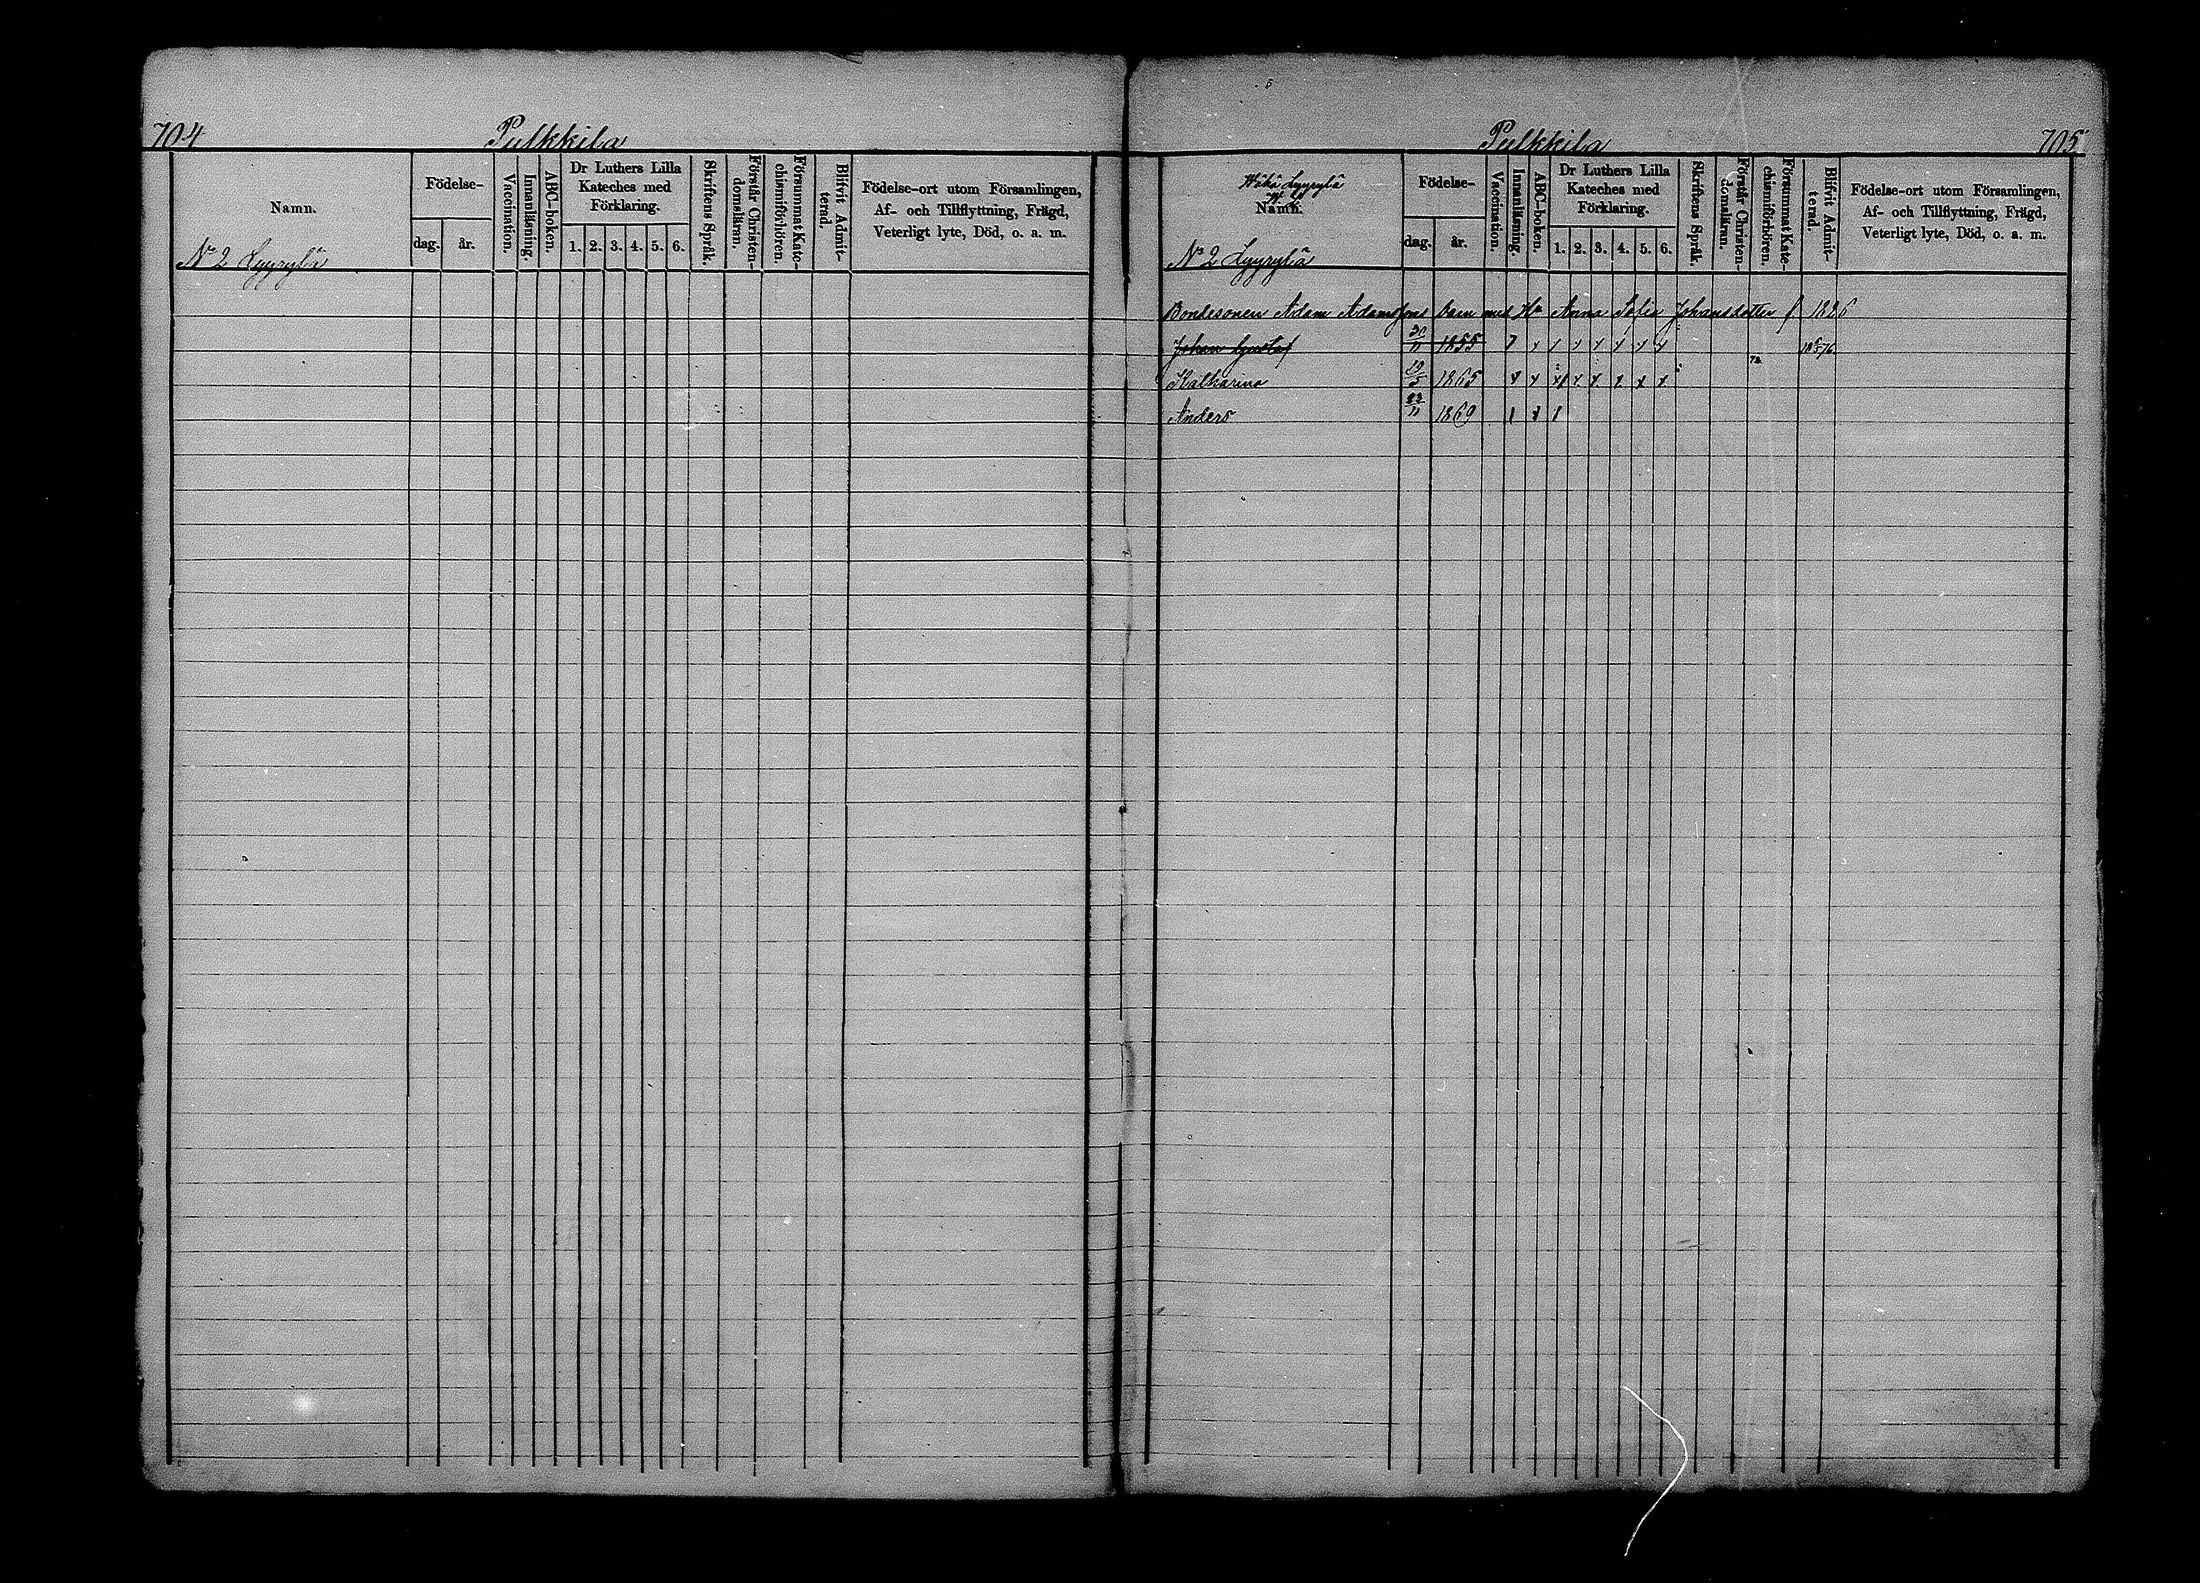 704 Pulkkila
Namn. Födelse- dag. år. Vaccination. Innanläsning. ABC-boken. Dr Luthers Lilla Kateches med Förklaring. 1. 2. 3. 4. 5. 6. Skriftens Språk. Förstår Christendomsläran. Försummat Katechismiförhören. Blifvit Admitterad. Födelse-ort utom Församlingen, Af- och Tillflyttning, Frägd, Veterligt lyte, Död, o. a. m.
No 2 Lyyrylä
Pulkkila 705
Wähä Lyyrylä
Namn. Födelse- dag. år. Vaccination. Innanläsning. ABC-boken. Dr Luthers Lilla Kateches med Förklaring. 1. 2. 3. 4. 5. 6. Skriftens Språk. Förstår Christendomsläran. Försummat Katechismiförhören. Blifvit Admitterad. Födelse-ort utom Församlingen, Af- och Tillflyttning, Frägd, Veterligt lyte, Död, o. a. m.
No 2 Lyyrylä
Bondesonen Adam Adamssons barn med Hu Anna Sofia Johansdotter f 1826
Johan Gustaf 30/11 1855
Katharina 19/5 1865
Anders 22/11 1869